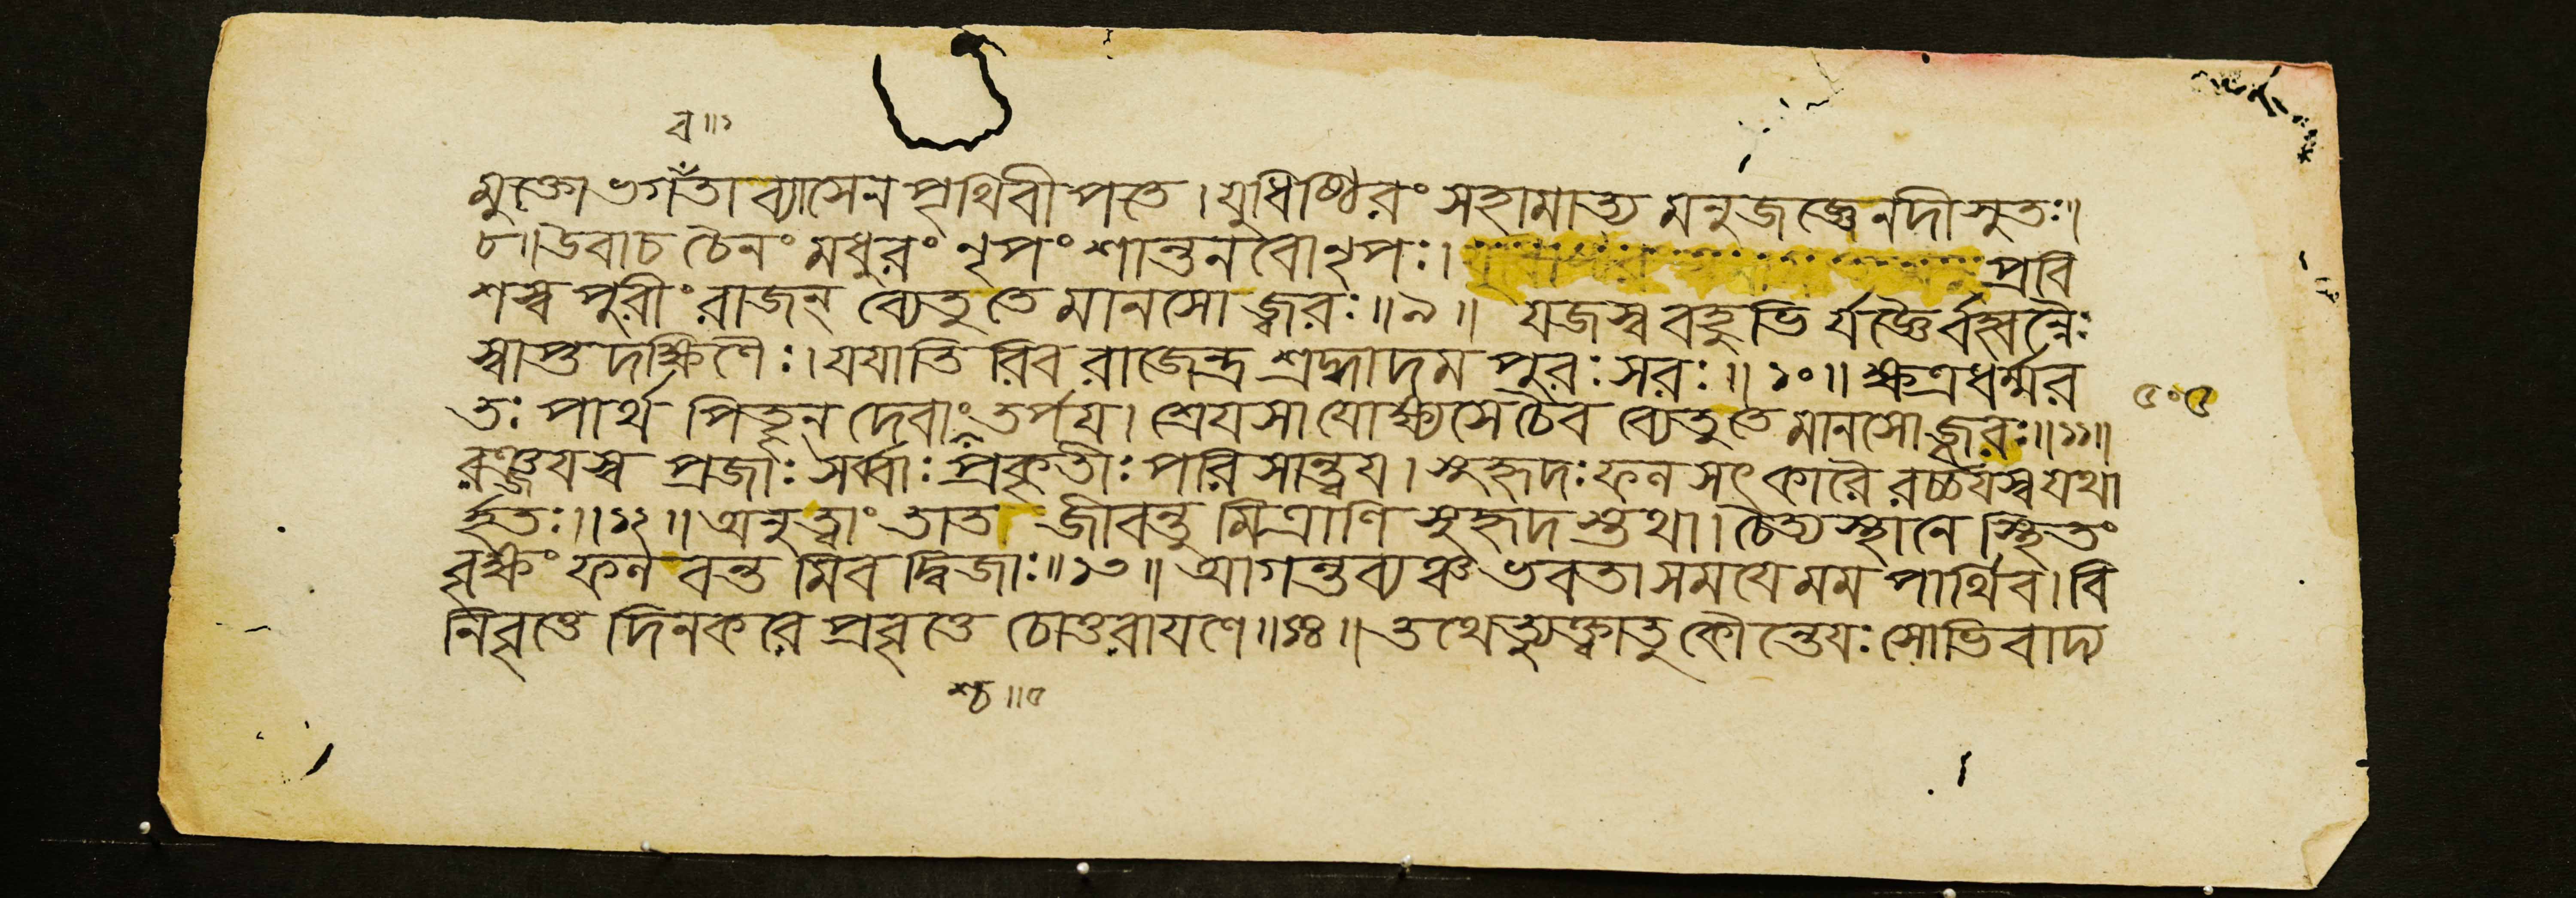 ব॥১
মুক্তো ভগঁতা ব্যাসেন পৃথিবীপতে। যুধিষ্ঠিরং সহামাত্য মনুজজ্ঞে নদীসুতঃ॥
৮॥ উবাচ চৈনং মধুরং নৃপং শান্তনবো নৃপঃ। প্রবি
শস্ব পুরীং রাজন্ ব্যেতু তে মানসো জ্বরঃ॥৯॥ যজস্ব বহুভির্যজ্ঞৈর্বহ্বন্নৈঃ
স্বাপ্তদক্ষিণৈঃ। যযাতিরিব রাজেন্দ্র শ্রদ্ধাদমপুরঃসরঃ॥১০॥ ক্ষত্রধর্ম্মর
তঃ পার্থ পিতৄন দেবাং তর্পয। শ্রেযসা যোক্ষ্যসে চৈব ব্যেতু তে মানসো জ্বরঃ॥১১॥
রঞ্জযস্ব প্রজাঃ সর্ব্বাঃ প্রকৃতীঃ পরিসান্ত্বয। সুহৃদঃ ফলসৎকারৈরর্চ্চযস্ব যথা
র্হতঃ॥১২॥ অনু ত্বাং তাত জীবন্তু মিত্রাণি সুহৃদস্তথা। চৈত্যস্থানে স্থিতং
বৃক্ষং ফলবন্তমিব দ্বিজাঃ॥১৩॥ আগন্তব্যঞ্চ ভবতা সমযে মম পার্থিব। বি
নিবৃত্তে দিনকরে প্রবৃত্তে চোত্তরাযণে॥১৪॥ তথেত্যুক্ত্বা তু কৌন্তেযঃ সোভিবাদ্য